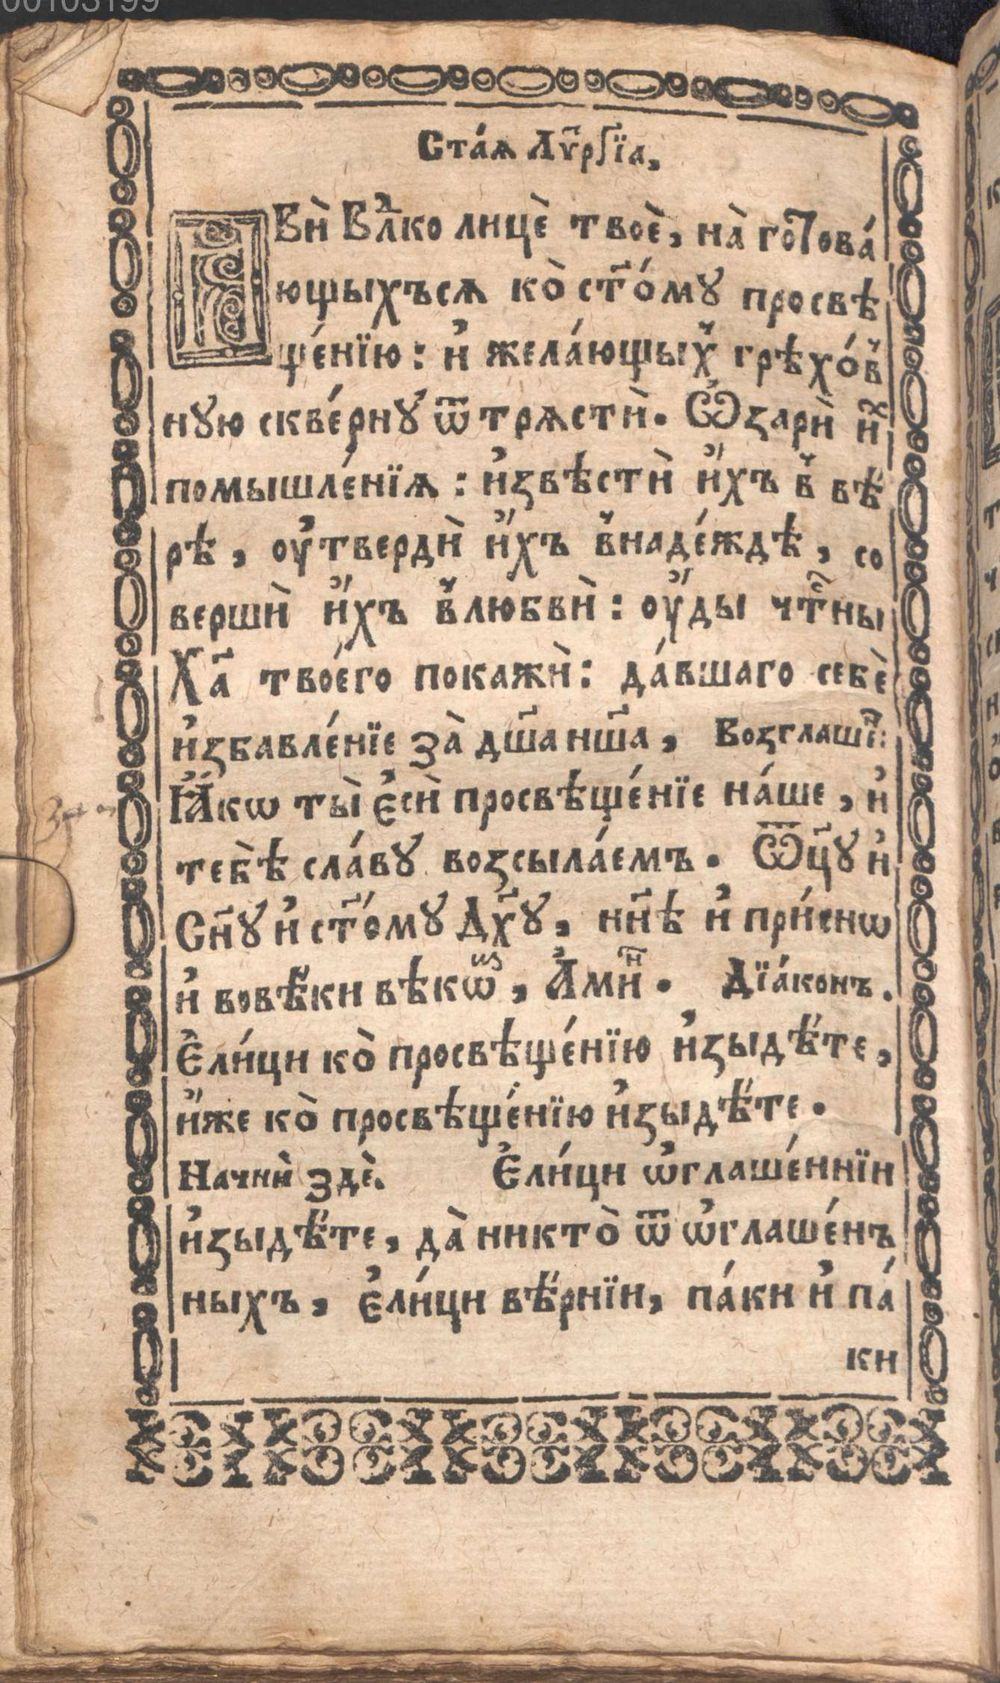 00103199
Ста́ѧ Лꙋр҃гїа,
Ꙗ҆вѝ Влⷣко лицѐ твоѐ, на̀ гото́ва́
ющыхъсѧ ко̀ ст҃о́мꙋ просвѣ
ще́нїю : и҆ жела́ющых̾ грѣхо́в̾
нꙋю скве́рнꙋ ѿтрѧстѝ. Ѽзарѝ и҆̀х
помышле́нїѧ : и҆звѣстѝ и҆́хъ в̾ вѣ́
рѣ, оу҆твердѝ и҆́хъ в̾наде́ждѣ, со
вершѝ и҆́хъ в̾любвѝ : оу҆́ды чт҃ны
Ха҃ твоє́го покажѝ : да́вшаго себѐ
и҆збавле́нїе за̀ дш҃а нш҃а, Возглаш҃:
Ꙗ҆́кѡ ты̀ є҆сѝ просвѣще́нїе на́ше, и҆
тебѣ̀ сла́вꙋ возсыла́емъ. Ѿц҃ꙋ и҆
Сн҃ꙋ и҆ ст҃о́мꙋ Дх҃ꙋ, нн҃ѣ и҆ при́снѡ
и҆ вовѣ́ки вѣкѡ́в, А҆ми́н. Дїа́конъ.
Є҆ли́ци ко̀ просвѣще́нїю и҆зыдѣ́те,
и҆́же ко̀ просвѣще́нїю и҆зыдѣ́те.
Начнѝ здѐ. Є҆ли́ци ѡ҆глаше́ннїи
и҆зыдѣ́те, да̀ никто̀ ѿ ѡ҆глаше́нъ
ныхъ, є҆ли́ци вѣ́рнїи, па́ки и҆ па́
ки